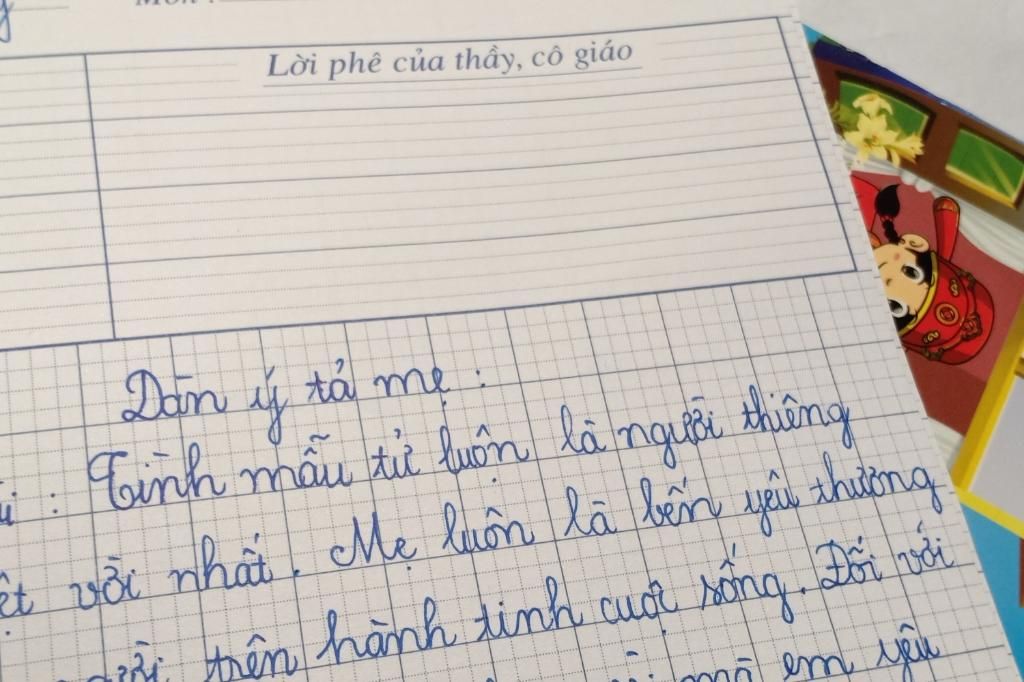 Lời phê của thầy, cô giáo
Dàn ý tả mẹ :
: Tình mẫu tử luôn là người thiêng
vời nhất. Mẹ luôn là bến yêu thương
trên hành tinh cuộc sống. Đối với
mà em yêu